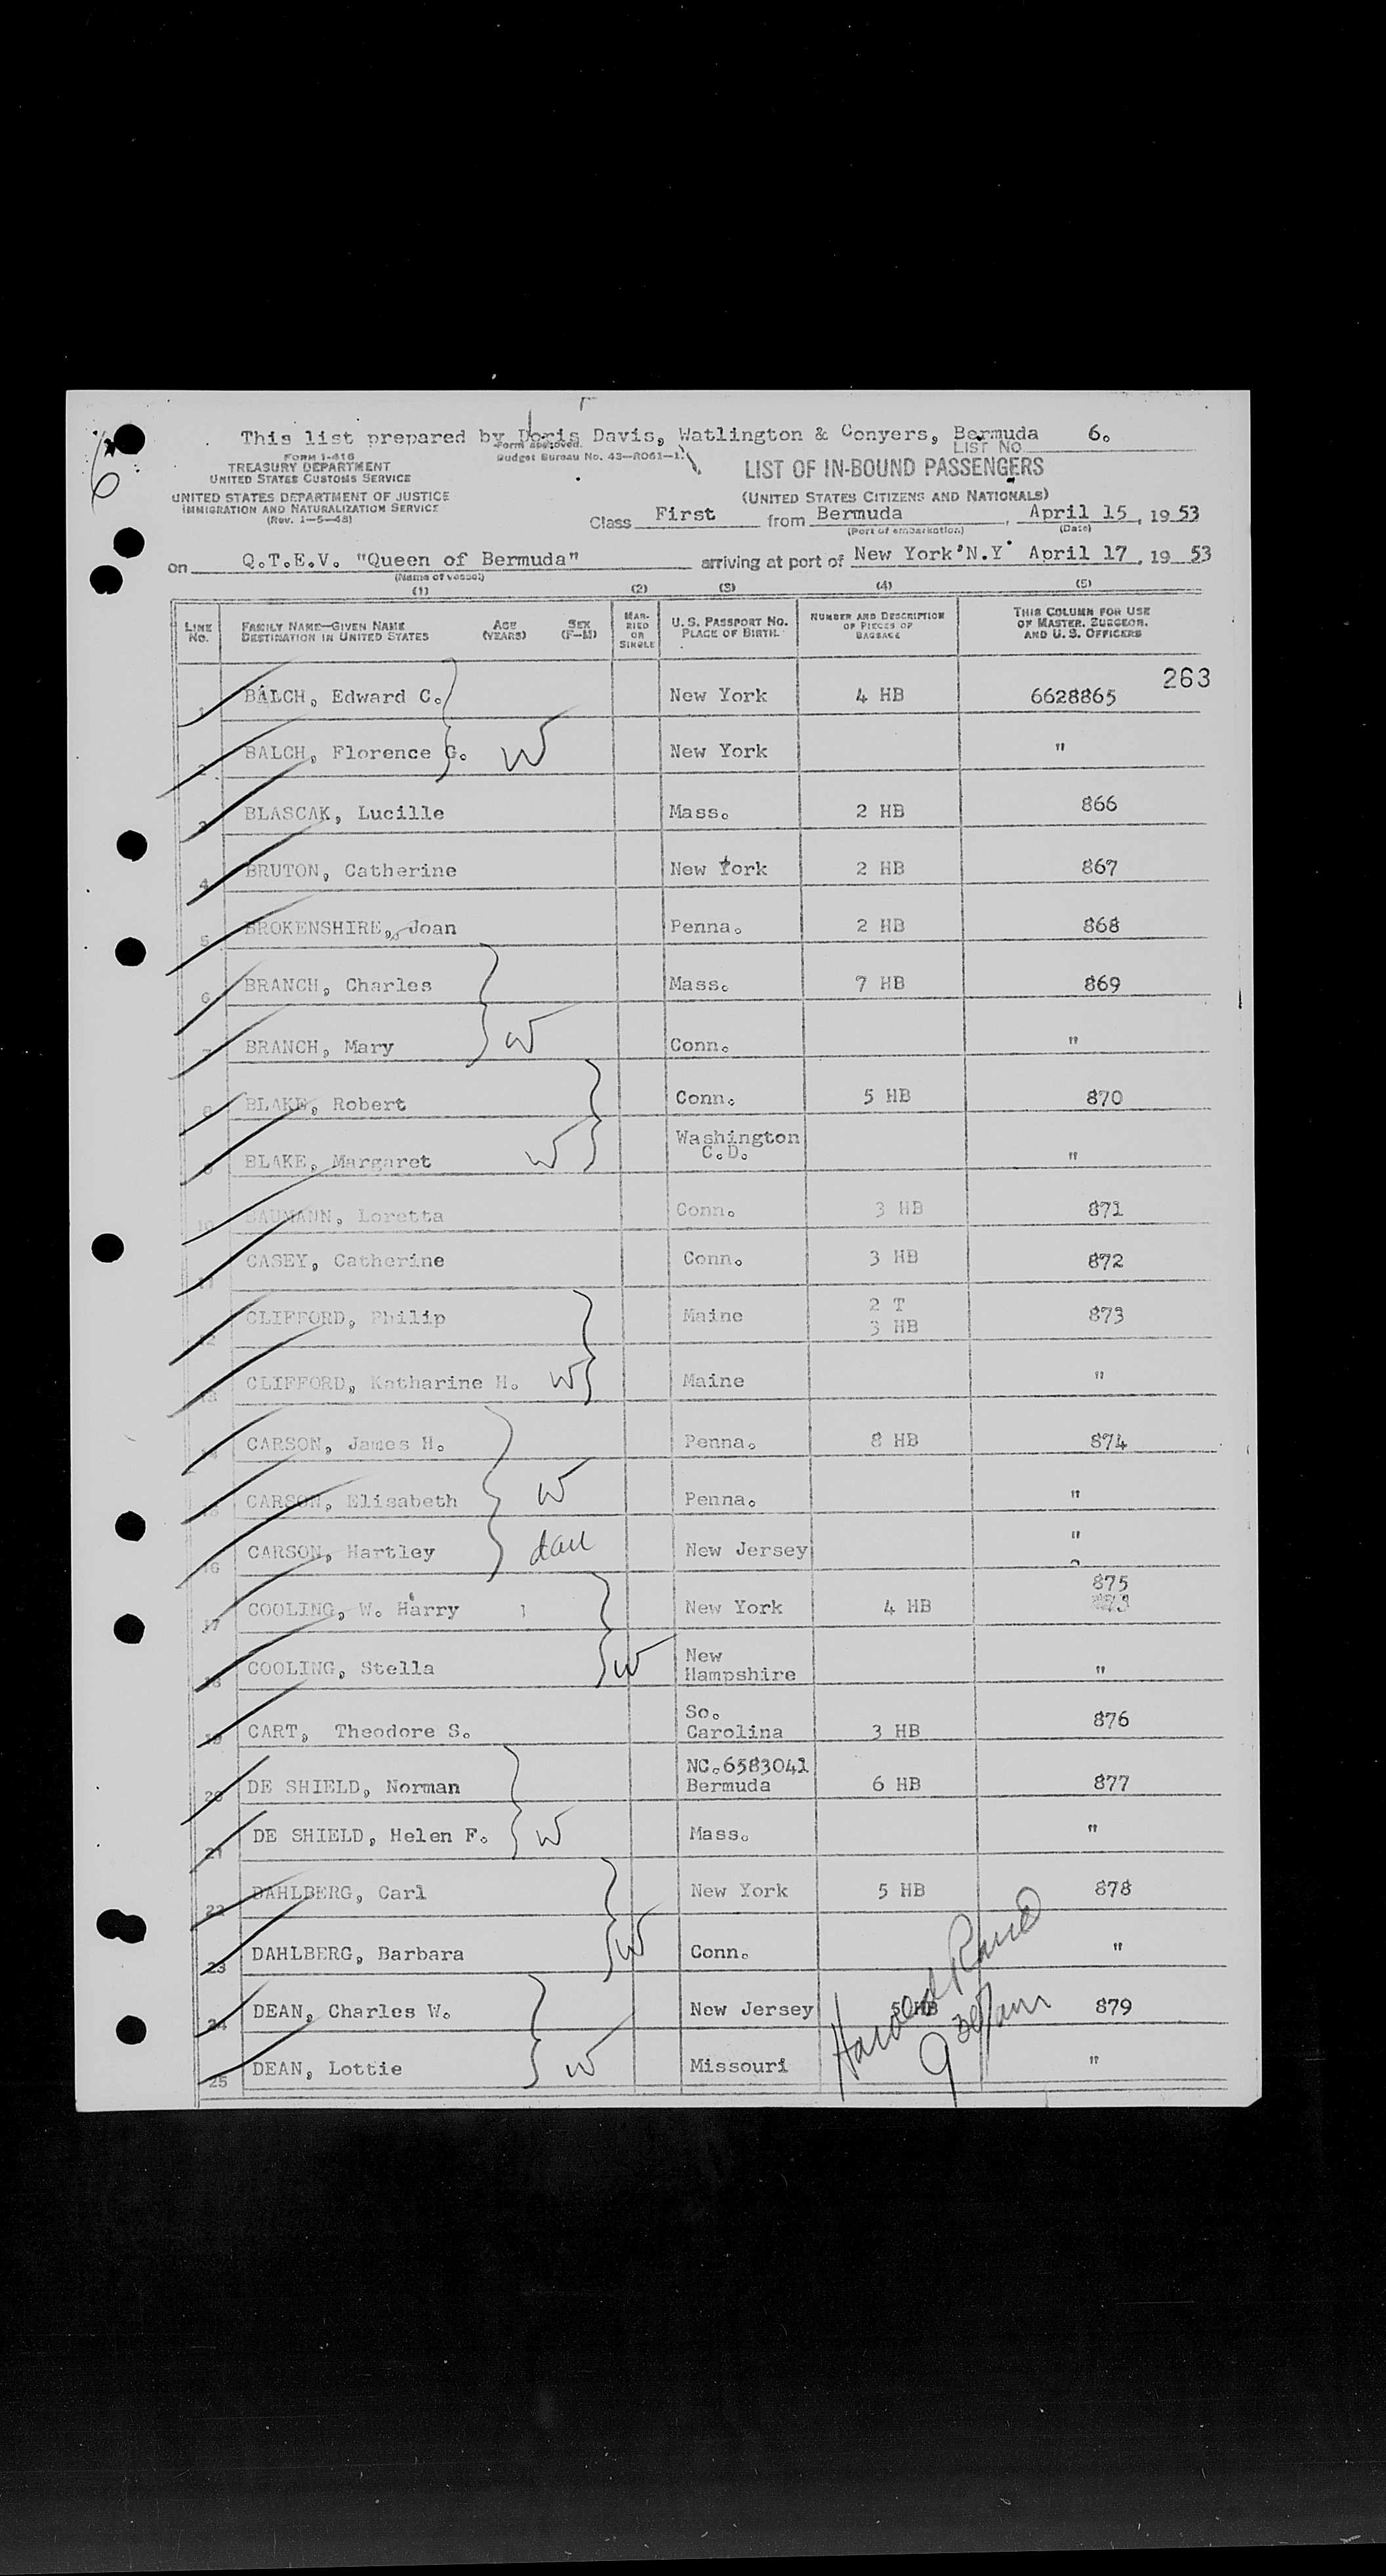 This list prepared by Doris Davis, Watlington & Conyers, Bermuda 6.
LIST NO.
FORM I-416
TREASURY DEPARTMENT
UNITED STATES CUSTOMS SERVICE
UNITED STATES DEPARTMENT OF JUSTICE
IMMIGRATION AND NATURALIZATION SERVICE
(Rev. 1-5-48)
Form approved.
Budget Bureau No. 43-R061-1.
LIST OF IN-BOUND PASSENGERS
(UNITED STATES CITIZENS AND NATIONALS)
Class First from Bermuda, April 15, 1953
(Port of embarkation) (Date)
on Q.T.E.V. "Queen of Bermuda" arriving at port of New York N.Y April 17, 1953
(Name of vessel)
(1) (2) (3) (4) (5)
LINE NO. FAMILY NAME—GIVEN NAME DESTINATION IN UNITED STATES AGE (YEARS) SEX (F-M) MARRIED OR SINGLE U. S. PASSPORT NO. PLACE OF BIRTH NUMBER AND DESCRIPTION OF PIECES OF BAGGAGE THIS COLUMN FOR USE OF MASTER, SURGEON, AND U. S. OFFICERS
263
1 BALCH, Edward C. New York 4 HB 6628865
2 BALCH, Florence G. W New York "
3 BLASCAK, Lucille Mass. 2 HB 866
4 BRUTON, Catherine New York 2 HB 867
5 BROKENSHIRE, Joan Penna. 2 HB 868
6 BRANCH, Charles Mass. 7 HB 869
7 BRANCH, Mary W Conn. "
8 BLAKE, Robert Conn. 5 HB 870
9 BLAKE, Margaret W Washington C.D. "
10 BAUMANN, Loretta Conn. 3 HB 871
11 CASEY, Catherine Conn. 3 HB 872
12 CLIFFORD, Philip Maine 2 T 3 HB 873
13 CLIFFORD, Katharine H. W Maine "
14 CARSON, James H. Penna. 8 HB 874
15 CARSON, Elisabeth W Penna. "
16 CARSON, Hartley dau New Jersey "
17 COOLING, W. Harry New York 4 HB 875
18 COOLING, Stella W New Hampshire "
19 CART, Theodore S. So. Carolina 3 HB 876
20 DE SHIELD, Norman NC.6583041 Bermuda 6 HB 877
21 DE SHIELD, Helen F. W Mass. "
22 DAHLBERG, Carl New York 5 HB 878
23 DAHLBERG, Barbara W Conn. "
24 DEAN, Charles W. New Jersey 5 HB 879
25 DEAN, Lottie W Missouri "